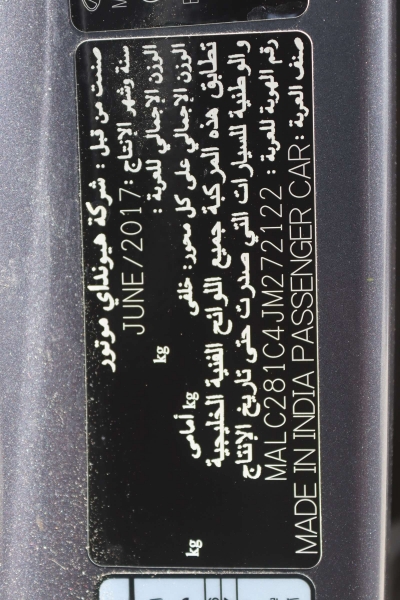 صنعت من قبل : شركة هيونداي موتور
سنة وشهر الإنتاج : JUNE/2017
الوزن الإجمالي للعربة : kg
الوزن الإجمالي على كل محور : خلفى kg أمامى kg
تطابق هذه المركبة جميع اللوائح الفنية الخليجية
والوطنية للسيارات التي صدرت حتى تاريخ الإنتاج
رقم الهوية للعربة : MALC281C4JM272122
صنف العربة : MADE IN INDIA PASSENGER CAR